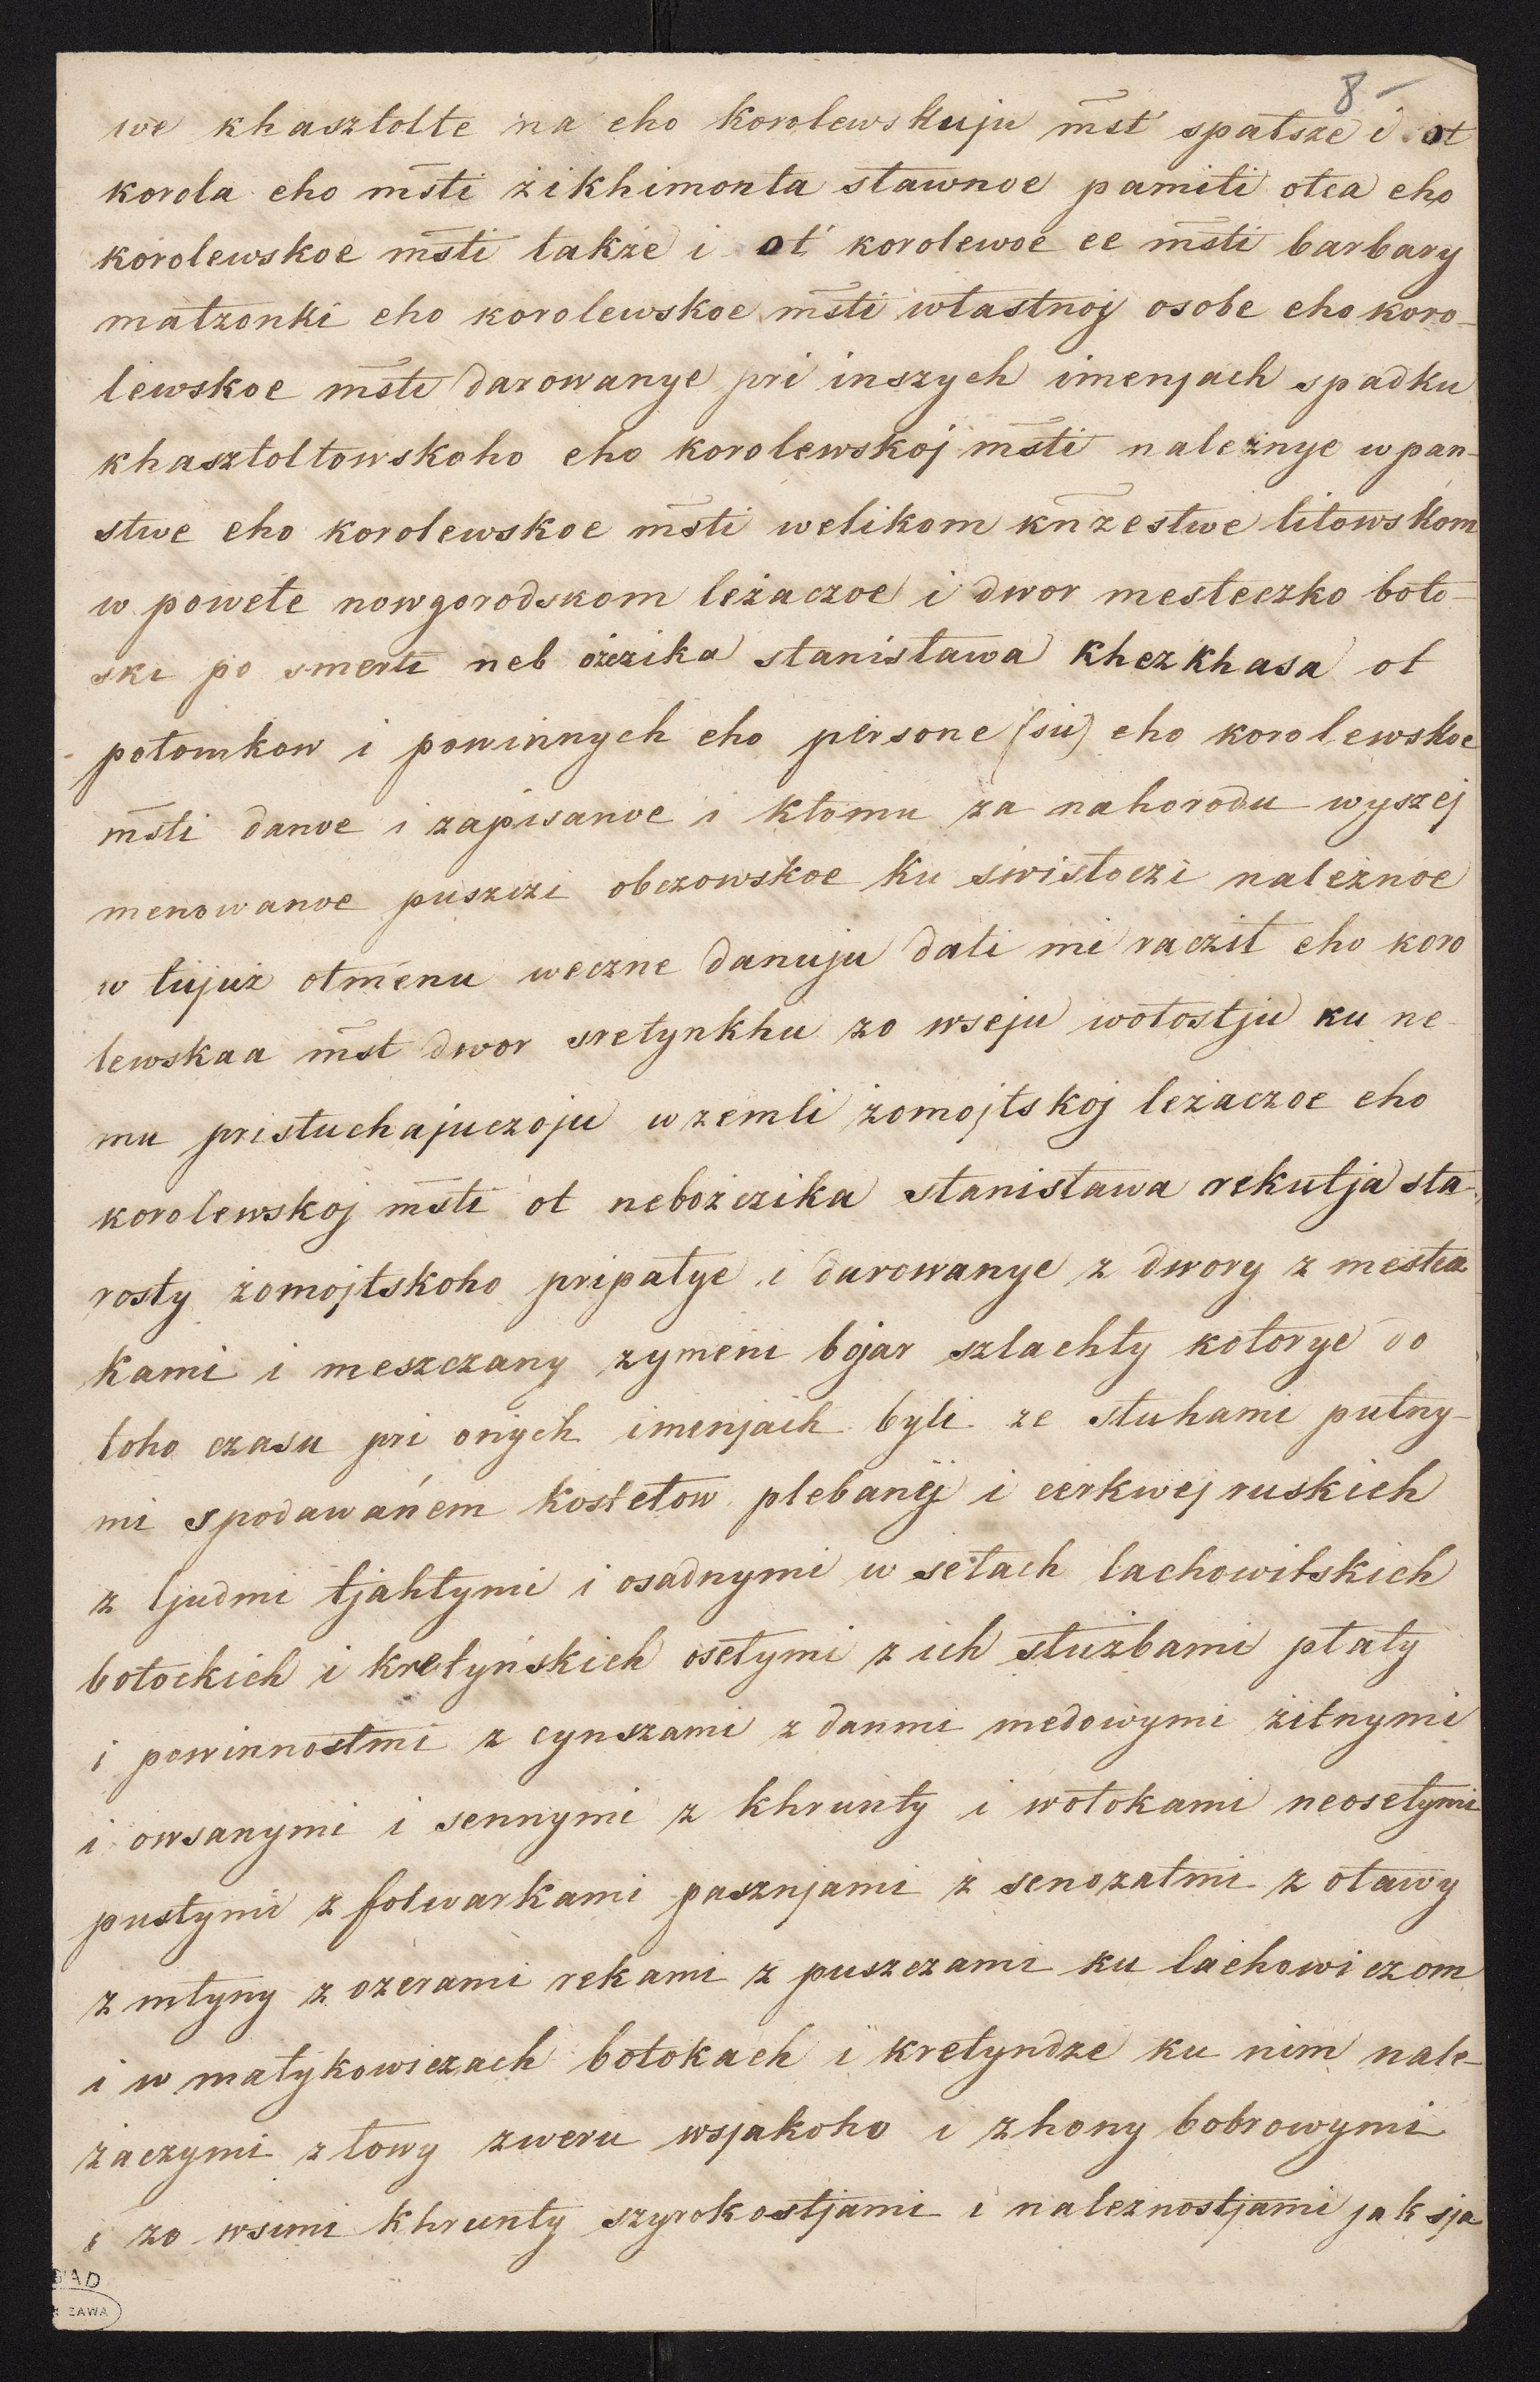 8
we khasztolte na eho korolewskuju mst' spałsze i ot
korola eho msti żikhimonta sławnoe pamiti otca eho
korolewskoe msti także i ot korolewoe ee msti barbary
małżonki eho korolewskoe msti włastnoj osobe eho koro-
lewskoe msti darowanye pri inszych imenjach spadku
khasztoltowskoho eho korolewskoj msti należnye w pan-
stwe eho korolewskoe msti welikom knżestwe litowskom
w powete nowgorodskom leżaczoe i dwor mesteczko boto-
ski po smerti neb ożczika stanisława khezkhasa ot
potomkow i powinnych eho persone (sic) eho korolewskoe
msti danoe i zapisanoe i ktomu za nahorodu wyszej
menowanoe puszczi obczowskoe ku swisłoczi należnoe
w tujuż otmenu weczne danuju dati mi racził eho koro
lewskaa mst dwor sretynkhu zo wseju wołostju ku ne-
mu pristuchajuczoju w zemli żomojtskoj leżaczoe eho
korolewskoj msti ot nebożczika stanisława rekutja sta-
rosty żomojtskoho pripałye i darowanye z dwory z mestea
kami i meszczany zymeni bojar szlachty kotorye do
toho czasu pri onych imenjach byli ze słuhami putny-
mi spodawańem kostełow plebanej i cerkwej ruskich
z ljudmi tjahłymi i osadnymi w sełach lachowitskich
botockich i kretyńskich osełymi z ich służbami płaty
i powinnostmi z cynszami z danmi medowymi żitnymi
i owsanymi i sennymi z khrunty i wołokami neosełymi
pustymi z folwarkami pasznjami z senożatmi z otawy
z młyny z ozerami rekami z puszczami ku lachowiczom
i w małykowiczach botokach i kretyndze ku nim nale-
żaczymi z łowy zweru wsjakoho i zhony bobrowymi
i zo wsimi khrunty szyrokostjami i należnostjami jak sja